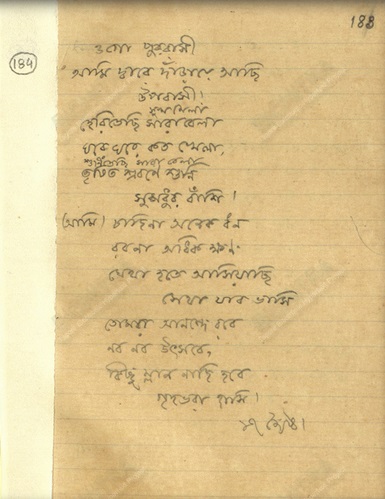 188
184
ওগো পুরবাসী
আমি দ্বারে দাঁড়ায়ে আছি
উপবাসী।
হেরিতেছি সারাবেলা
ঘরে ঘরে কত খেলা,
শুনিতেছি সারা বেলা
সুমধুর বাঁশি।
(আমি) চাহিনা অনেক ধন
রবনা অধিক ক্ষণ
যেথা হতে আসিয়াছি
সেথা যাব ভাসি
তোমরা আনন্দে রবে
নব নব উৎসবে,
কিছু ম্লান নাহি হবে
গৃহভরা হাসি।
জ্যৈষ্ঠ।